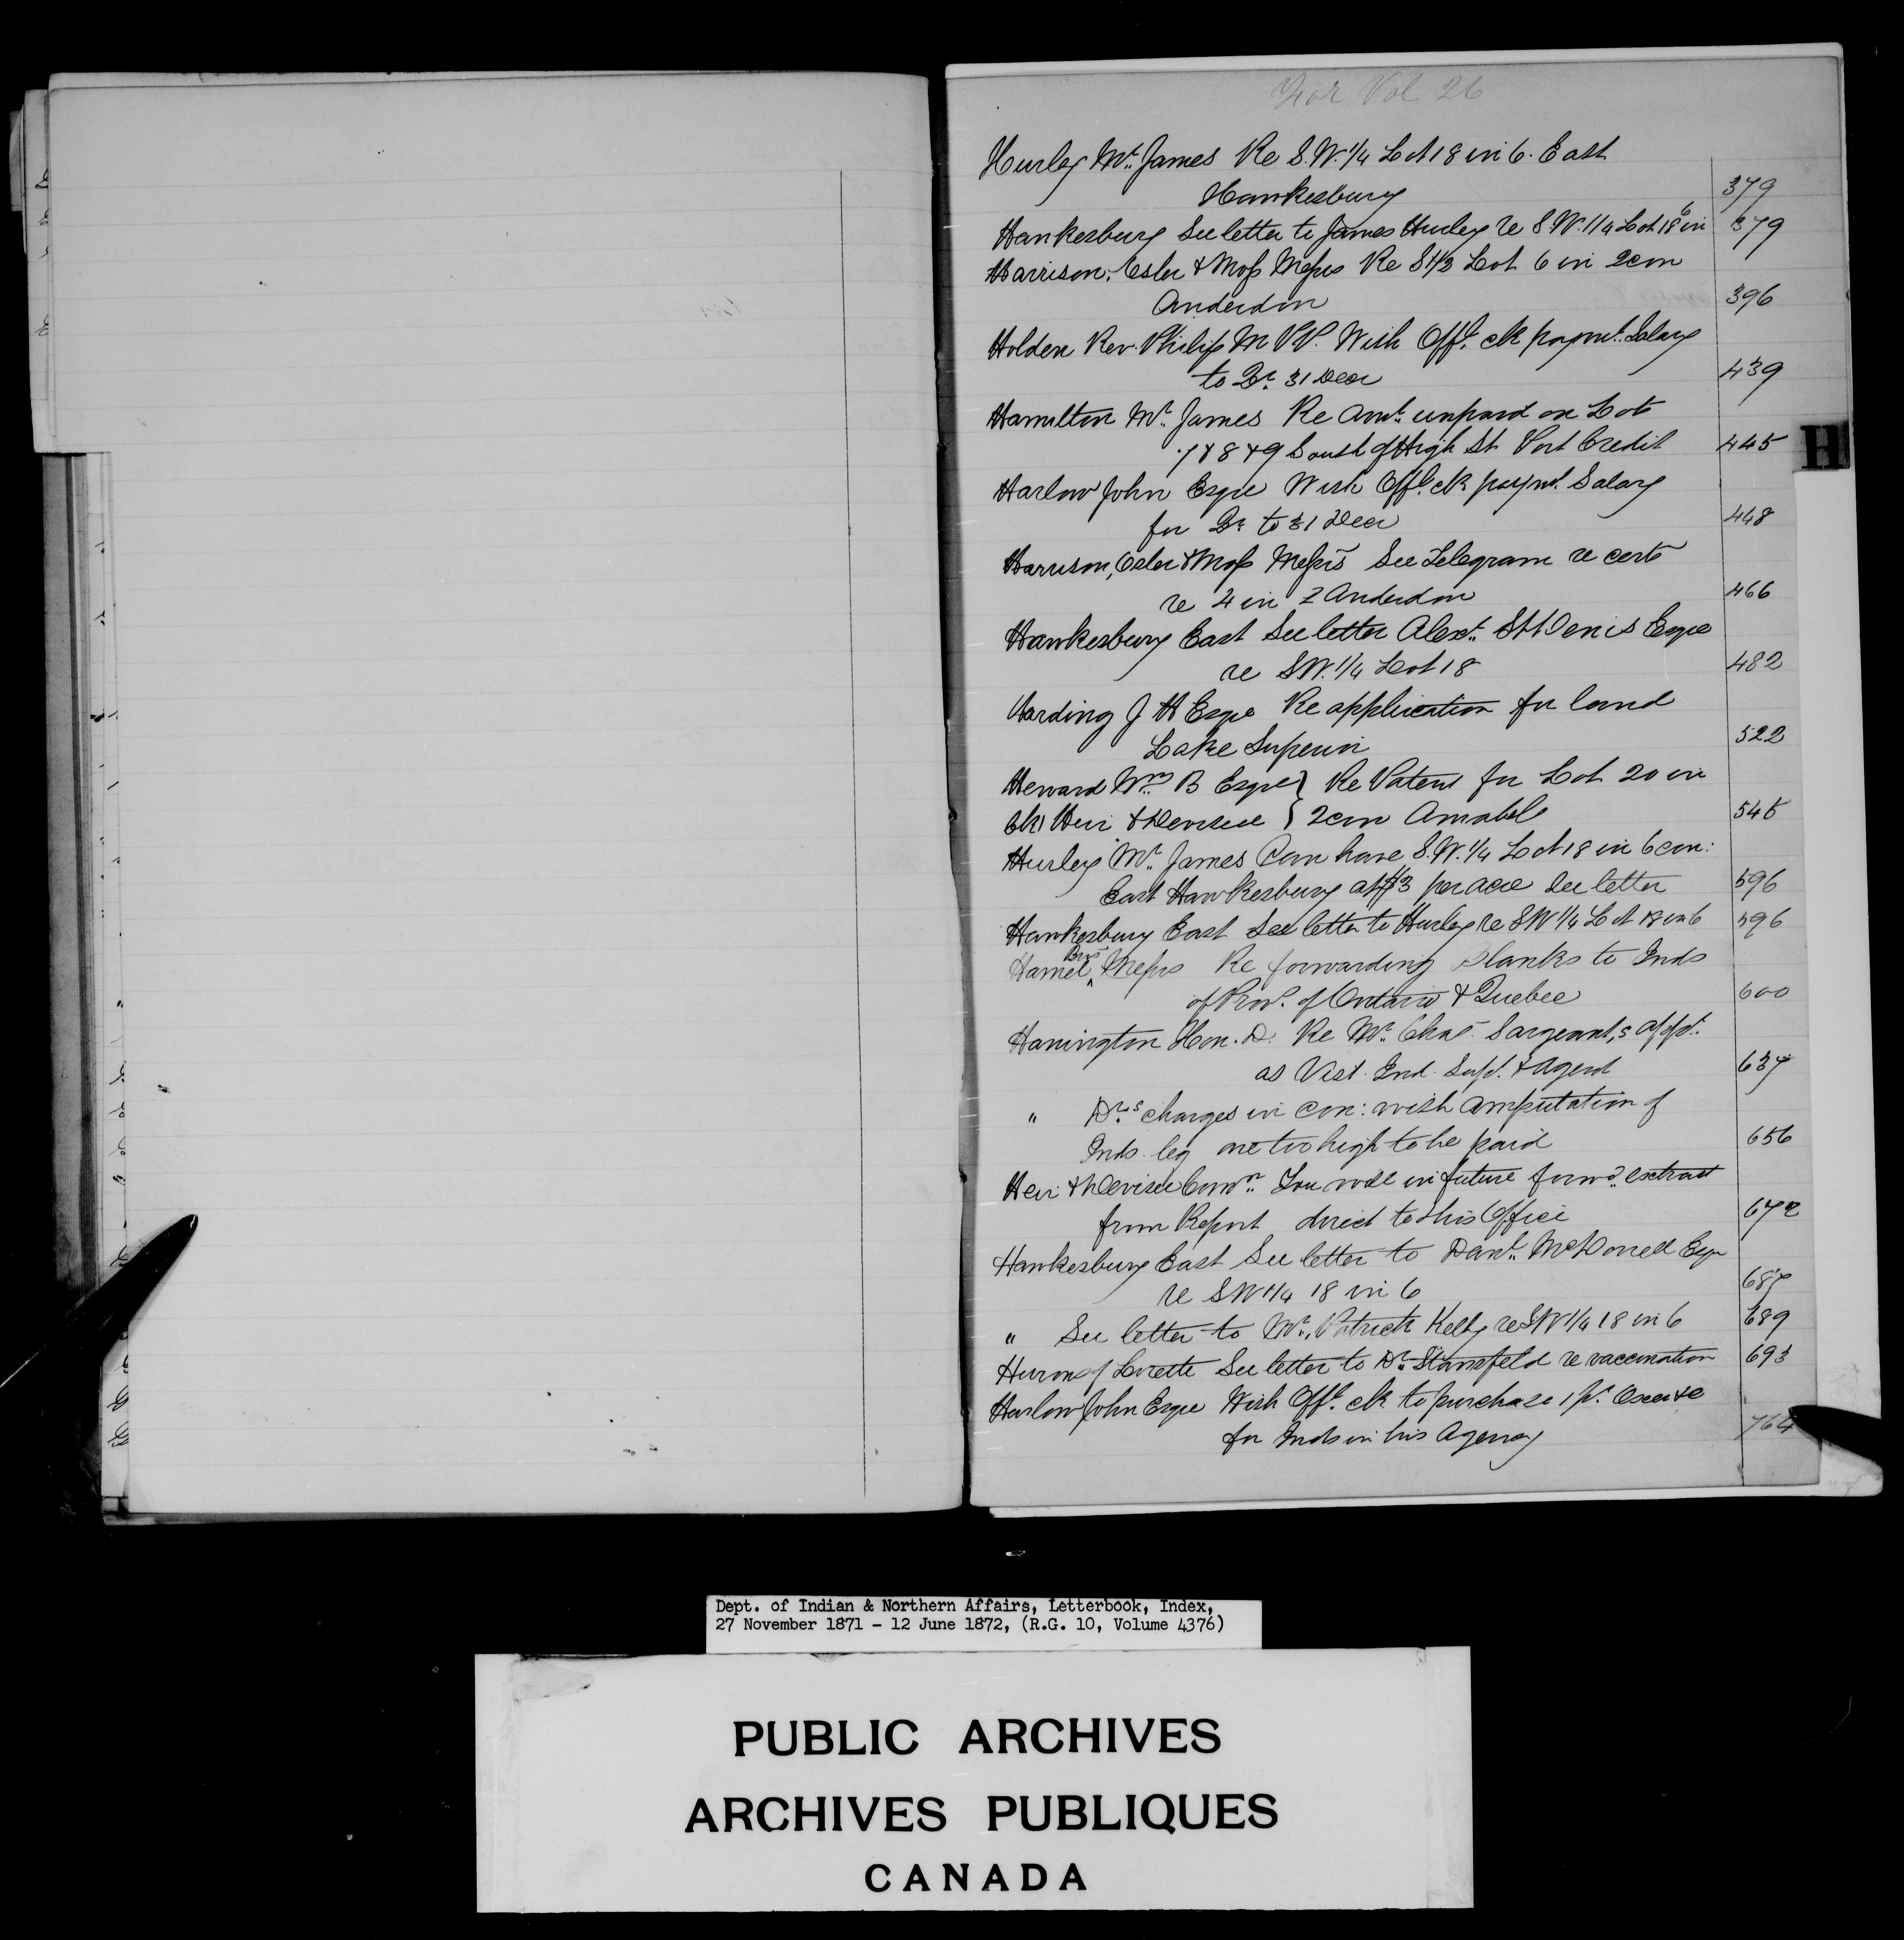 For Vol 26
Hurley Mr. James Re S.W. 1/4 Lot 18 in 6. East
Hawkesbury 379
Hawkesbury See letter to James Hurley re S.W. 1/4 Lot 18 in 6 379
Harrison, Osler & Moss Messrs Re S 1/2 Lot 6 in 2 con
Anderdon 396
Holden Rev. Philip M P.P. With Offl. ck paymt. Salary
to Qr. 31 Decr 439
Hamilton Mr. James Re Amt. unpaid on Lots
7 & 8 & 9 South of High St Port Credit 445
H
Harlow John Esqre With Offl. ck paymt. Salary
for Qr. to 31 Decr 448
Harrison, Osler & Moss Messrs See Telegram re certs
re 4 in 2 Anderdon 466
Hawkesbury East See letter Alexr. St. Denis Esqre
re S.W. 1/4 Lot 18 482
Harding J H Esqre Re application for land
Lake Superior 522
Heward Wm. B Esqre } Re Patent for Lot 20 in
Clk Heir & Devisee } 2 con Amabel 545
Hurley Mr. James Can have S.W. 1/4 Lot 18 in 6 con:
East Hawkesbury at $3 per acre See letter 596
Hawkesbury East See letter to Hurley re SW 1/4 Lot 18 in 6 596
Hamel Bros Messrs Re forwarding Blanks to Inds
of Prov. of Ontario & Quebec 600
Hanington Hon. D. Re Mr. Chas Sargeant,s appt.
as Vist. Ind. Supt. & Agent 637
" Dr.s charges in con: with amputation of
Inds leg are too high to be paid 656
Heir & Devisee Comn. You will in future forwd. extract
from Report direct to this Office 672
Hawkesbury East See letter to Danl. McDonell Esqr
re SW 1/4 18 in 6 687
" See letter to Mr. Patrick Kelly re SW 1/4 18 in 6 689
Hurons of Lorette See letter to Dr. Stansfeld re vaccination 693
Harlow John Esqre With Offl. ck to purchase 1 pr. Oxen &c
for Inds in his Agency 764
Dept. of Indian & Northern Affairs, Letterbook, Index,
27 November 1871 - 12 June 1872, (R.G. 10, Volume 4376)
PUBLIC ARCHIVES
ARCHIVES PUBLIQUES
CANADA